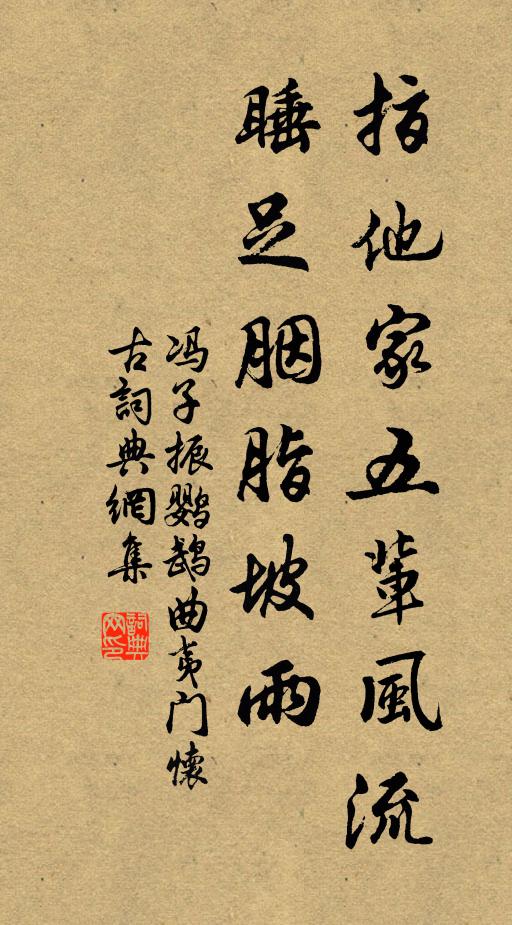 指他家五輩風流
睡足胭脂坡雨
冯子振鹦鹉曲夷门懷
古詞典網集
詞典網印